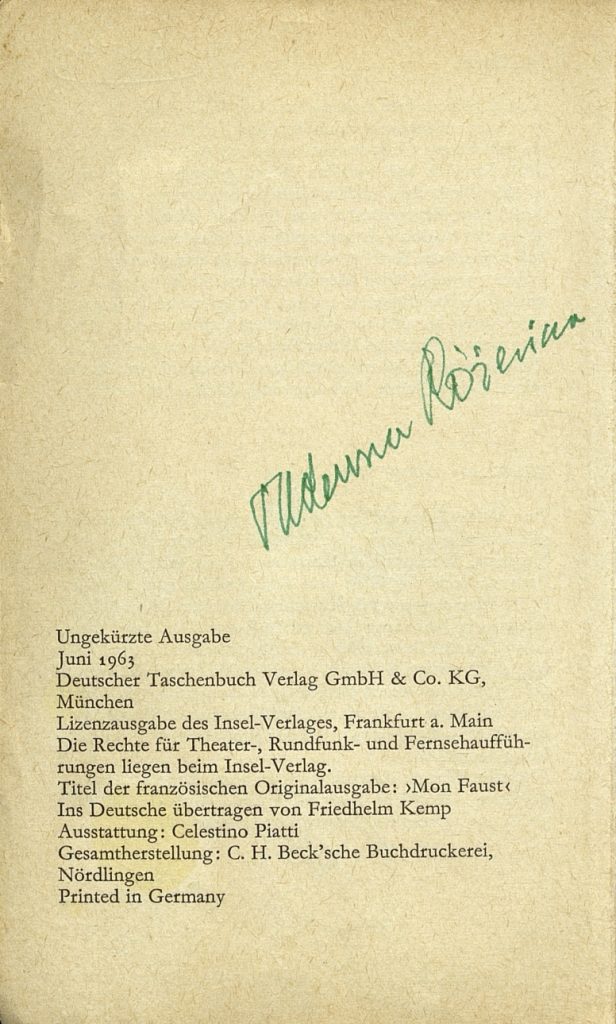 Ungekürzte Ausgabe
Juni 1963
Deutscher Taschenbuch Verlag GmbH & Co. KG,
München
Lizenzausgabe des Insel-Verlages, Frankfurt a. Main
Die Rechte für Theater-, Rundfunk- und Fernsehauffüh-
rungen liegen beim Insel-Verlag.
Titel der französischen Originalausgabe: ›Mon Faust‹
Ins Deutsche übertragen von Friedhelm Kemp
Ausstattung: Celestino Piatti
Gesamtherstellung: C. H. Beck'sche Buchdruckerei,
Nördlingen
Printed in Germany